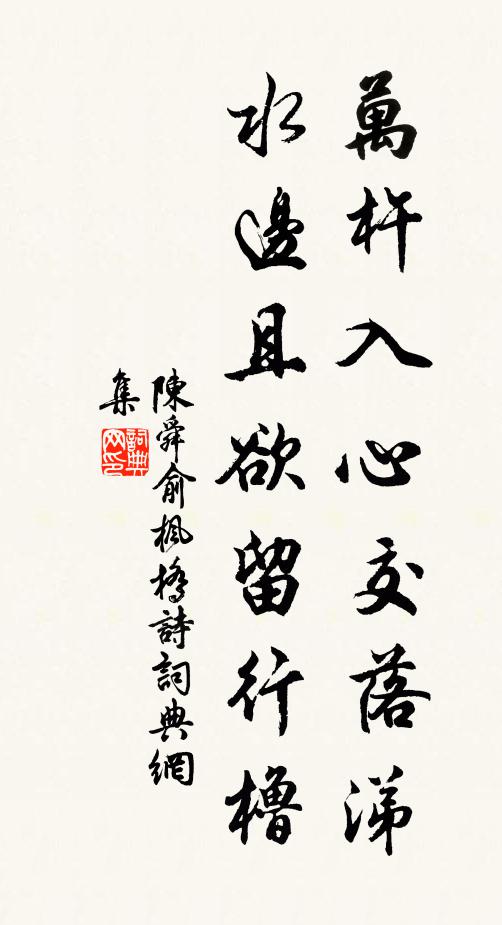 萬杵入心交落涕
水邊且欲留行櫓
陳舜俞楓橋詩詞典網
集
詞典网印